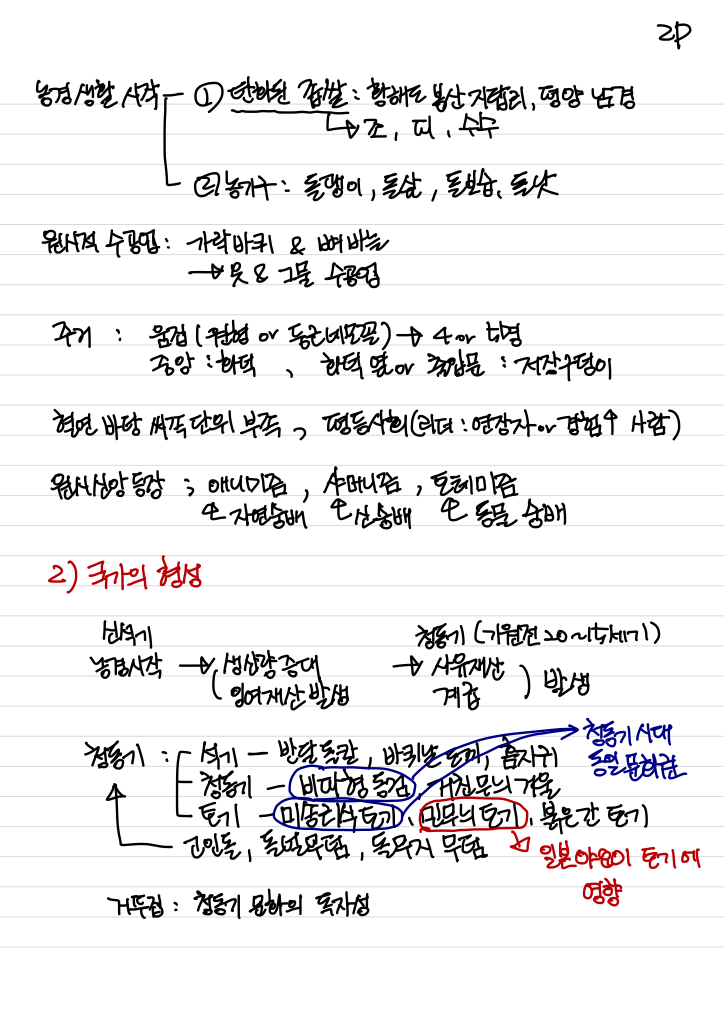 2P
농경생활 시작 ─ ① 탄화된 좁쌀 : 황해도 봉산 지탑리, 평양 남경
↳ 조, 피, 수수
② 농기구 : 돌괭이, 돌삽, 돌보습, 돌낫
원시적 수공업 : 가락바퀴 & 뼈바늘
→ 옷 & 그물 수공업
주거 : 움집 (원형 or 둥근네모꼴) → 4 or 5명
중앙 : 화덕 、 화덕 옆 or 출입문 : 저장구덩이
혈연 바탕 씨족단위 부족 、 평등사회 (리더 : 연장자 or 경험↑ 사람)
원시신앙 등장 ; 애니미즘, 샤머니즘, 토테미즘
자연숭배 신숭배 동물 숭배
2) 국가의 형성
신석기 청동기 (기원전 20~15세기)
농경시작 → 생산량 증대 → 사유재산
( 잉여재산 발생 계급 ) 발생
청동기 시대
동일 문화권
청동기 : 석기 ─ 반달돌칼, 바퀴날 도끼, 홈자귀
청동기 ─ 비파형 동검, 거친무늬 거울
토기 ─ 미송리식 토기, 민무늬 토기, 붉은간 토기
고인돌, 돌널무덤, 돌무지 무덤
일본 야요이 토기에
영향
거푸집 : 청동기 문화의 독자성